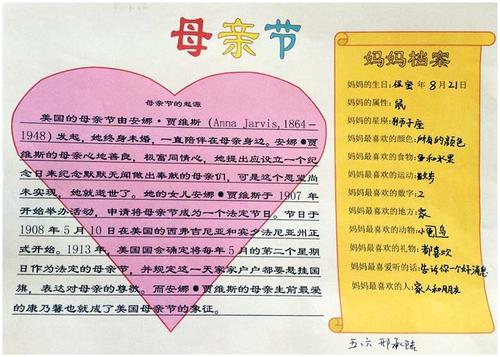 母亲节
母亲节的起源
美国的母亲节由安娜·贾维斯(Anna Jarvis,1864-
1948)发起，她终身未婚，一直陪伴在母亲身边。安娜●贾
维斯的母亲心地善良，极富同情心，她提出应设立一个纪
念日来纪念默默无闻做出奉献的母亲们，可是这个愿望尚
未实现，她就逝世了。她的女儿安娜●贾维斯于 1907 年
开始举办活动，申请将母亲节成为一个法定节日。节日于
1908 年 5 月 10 日在美国的西弗吉尼亚和宾夕法尼亚州正
式开始。1913 年，美国国会确定将每年 5 月的第二个星期
日作为法定的母亲节，并规定这一天家家户户都要悬挂国
旗，表达对母亲的尊敬。而安娜●贾维斯的母亲生前最爱
的康乃馨也就成了美国母亲节的象征。
妈妈档案
妈妈的生日:保密 年 8 月 21 日
妈妈的属性:鼠
妈妈的星座:狮子座
妈妈最喜欢的颜色:所有的颜色
妈妈最喜欢的食物:鱼和水果
妈妈最喜欢的运动:散步
妈妈最喜欢的数字:2
妈妈最喜欢的地方:家
妈妈最喜欢的动物:小鸟
妈妈最喜欢的礼物:都喜欢
妈妈最喜爱听的话:告诉你一个好消息
妈妈最喜欢的人:家人和朋友
五、六 邢承陆